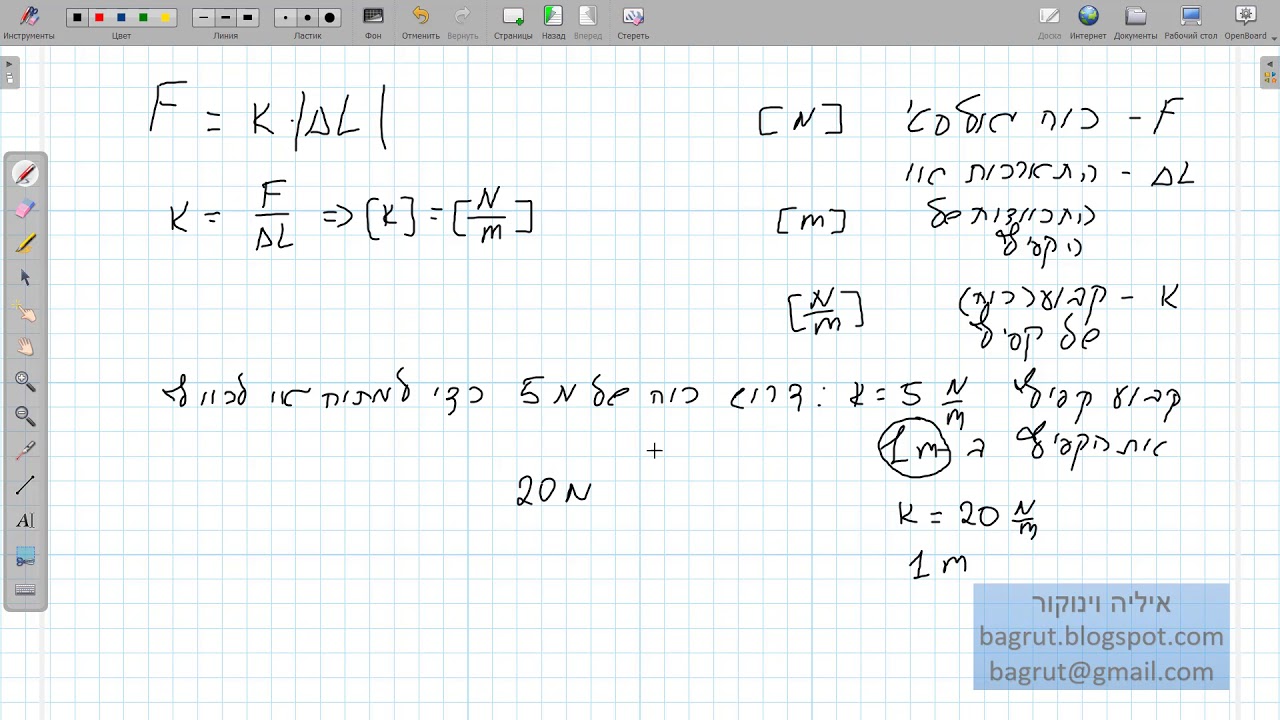 Инструменты Цвет Линия Ластик Фон Отменить Вернуть Страницы Назад Вперед Стереть Доска Интернет Документы Рабочий стол OpenBoard
F = K·|ΔL|
K = F/ΔL => [K] = [N/m]
F - כוח אלסטי [N]
ΔL - התארכות או
התכווצות של [m]
הקפיץ
K - קבוע (כוח) [N/m]
של קפיץ
קבוע קפיץ K = 5 N/m : דרוש כוח של 5N כדי למתוח או לכווץ
את הקפיץ ב 1m
20N
K = 20 N/m
1m
איליה וינוקור
bagrut.blogspot.com
bagrut@gmail.com